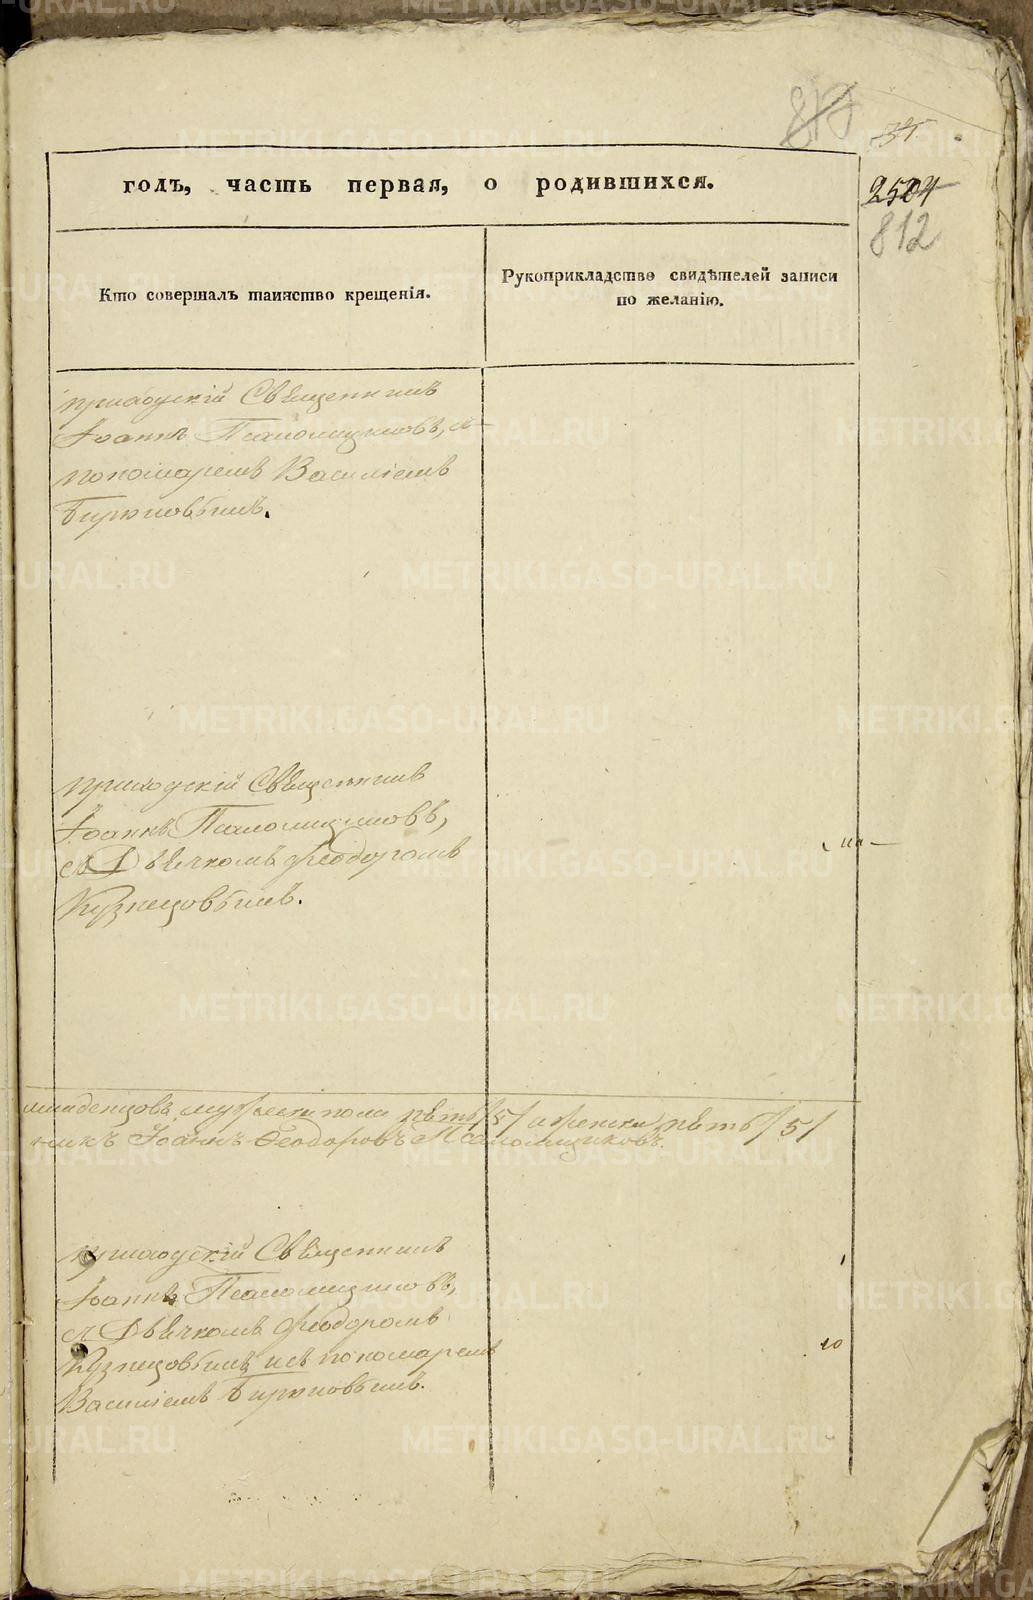 813
34.
годъ, часть первая, о родившихся.
2504
812
Кто совершалъ таинство крещенія.
Рукоприкладство свидѣтелей записи
по желанію.
приходскій Священникъ
Іоаннъ Псаломщиковъ, съ
пономаремъ Василіемъ
Бирюковымъ.
приходскій Священникъ
Іоаннъ Псаломщиковъ,
съ Дьячкомъ Феодоромъ
Кузнецовымъ.
младенцовъ мужеска пола пять /5/ и женска пять /5/
Іоаннъ Феодоровъ Псаломщиковъ.
приходскій Священникъ
Іоаннъ Псаломщиковъ,
съ Дьячкомъ Феодоромъ
Кузнецовымъ и съ пономаремъ
Василіемъ Бирюковымъ.
METRIKI.GASO-URAL.RU